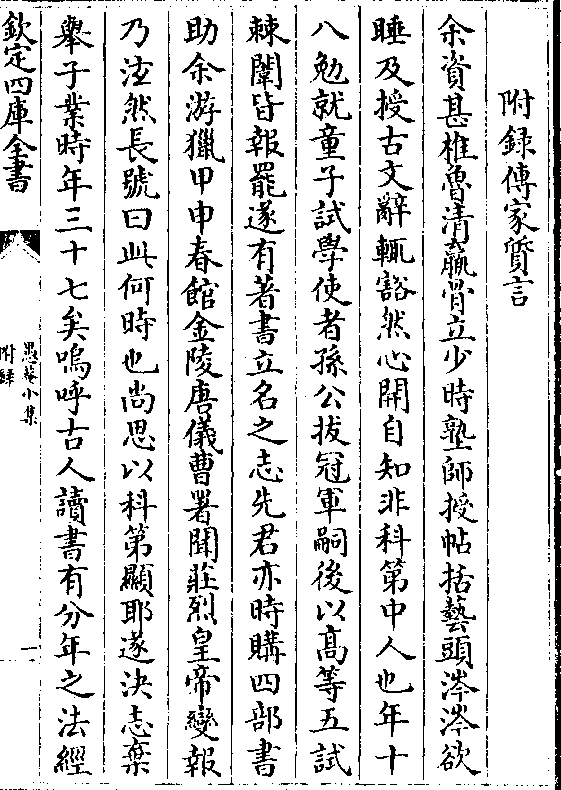 附録傳家質言
余資甚椎魯清羸骨立少時塾師授帖括藝頭涔涔欲
睡及授古文辭輒豁然心開自知非科第中人也年十
八勉就童子試學使者孫公拔冠軍嗣後以髙等五試
棘闈皆報罷遂有著書立名之志先君亦時購四部書
助余游獵甲申春館金陵唐儀曹署聞莊烈皇帝變報
乃泫然長號曰此何時也尚思以科第顯耶遂決志棄
舉子業時年三十七矣嗚呼古人讀書有分年之法經
欽定四庫全書
愚菴小集
附録
一